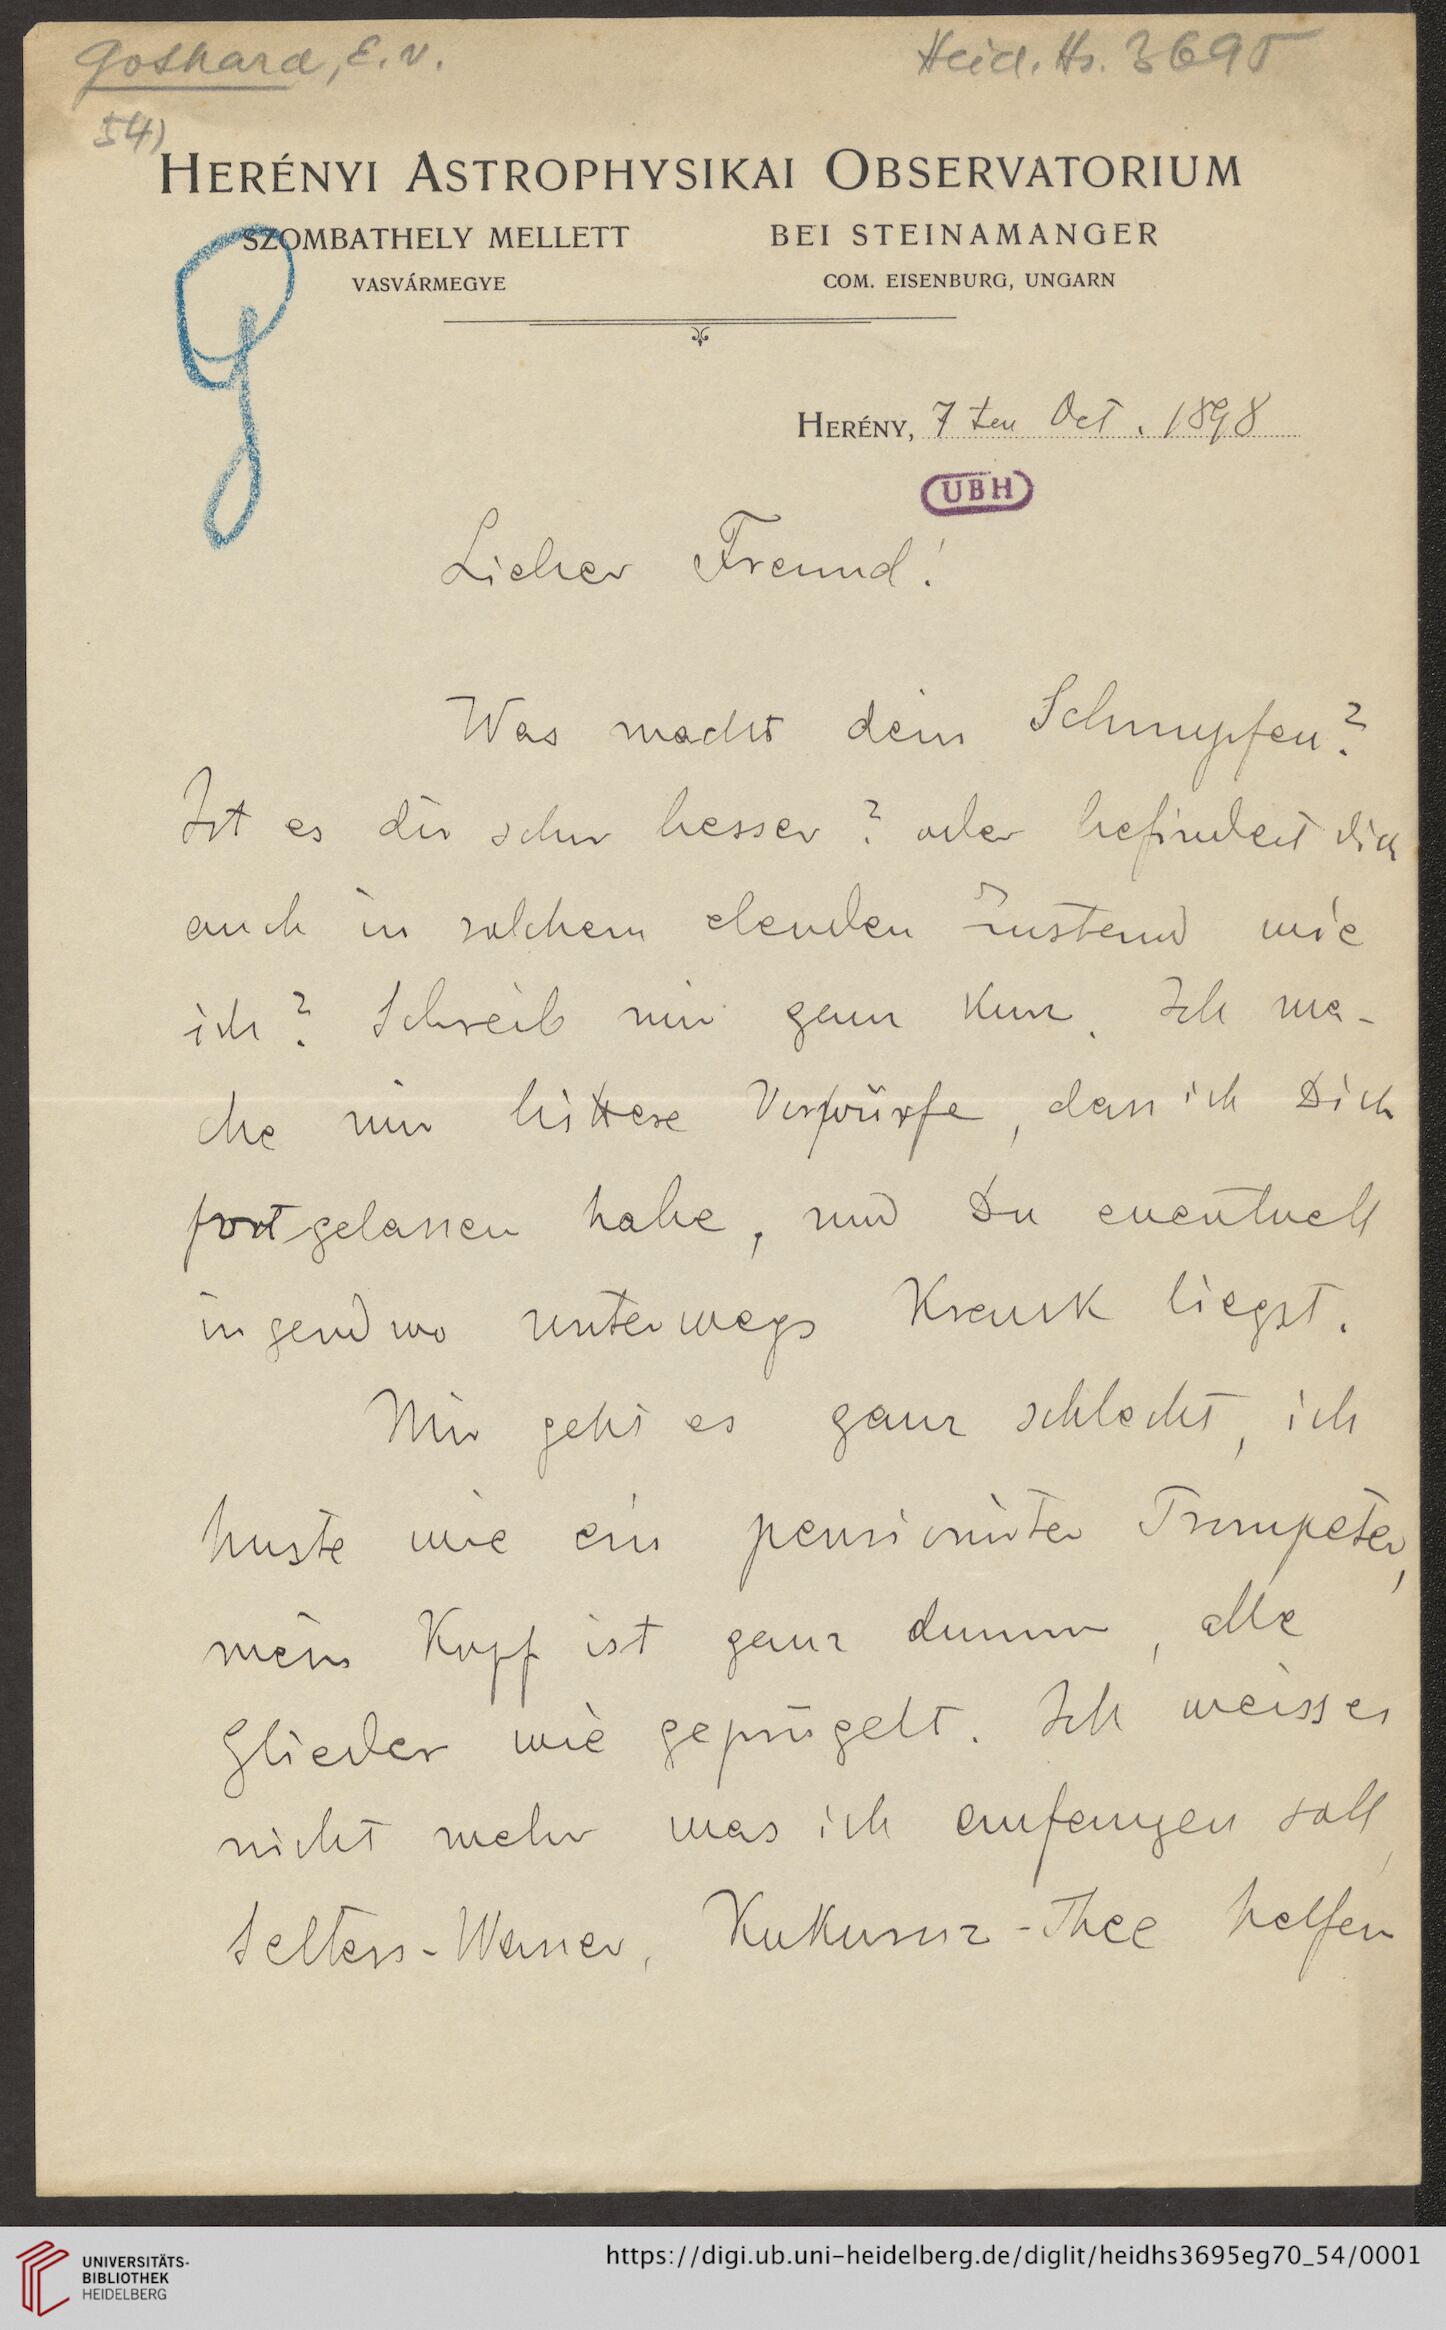 Gothard, E. v.
Heid. Hs. 3695
54)
HERÉNYI ASTROPHYSIKAI OBSERVATORIUM
SZOMBATHELY MELLETT
BEI STEINAMANGER
VASVÁRMEGYE
COM. EISENBURG, UNGARN
g
HERÉNY, 7ten Oct. 1898
UBH
Lieber Freund!
Was macht dein Schnupfen?
Ist es dir schon besser? oder befindest dich
auch in solchem elenden Zustand wie
ich? Schreib mir ganz kurz. Ich ma-
che mir bittere Vorwürfe, dass ich Dich
fortgelassen habe, und Du eventuell
irgendwo unterwegs Krank liegst.
Mir geht es ganz schlecht, ich
huste wie ein pensionirter Trompeter,
mein Kopf ist ganz dumm, alle
Glieder wie geprügelt. Ich weiss es
nicht mehr was ich anfangen soll,
Selters-Wasser, Kukuruz-Thee helfen
UNIVERSITÄTS-
BIBLIOTHEK
HEIDELBERG
https://digi.ub.uni-heidelberg.de/diglit/heidhs3695eg70_54/0001